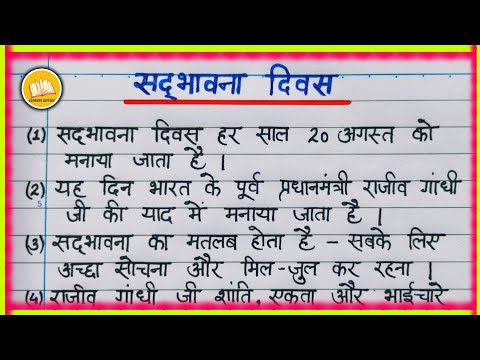 सद्‌भावना दिवस
(1) सद्‌भावना दिवस हर साल 20 अगस्त को
मनाया जाता है ।
(2) यह दिन भारत के पूर्व प्रधानमंत्री राजीव गांधी
जी की याद में मनाया जाता है ।
(3) सद्‌भावना का मतलब होता है – सबके लिए
अच्छा सोचना और मिल-जुल कर रहना ।
(4) राजीव गांधी जी शांति, एकता और भाईचारे